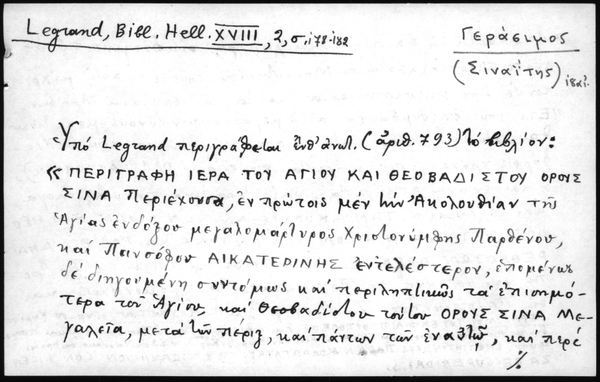 Legrand, Bibl. Hell. XVIII, 2, σ. 178-182
Γεράσιμος
(Σιναΐτης)
Ὑπό Legrand περιγράφεται ἐνθ' ἀνωτ. (ἀριθ. 793) τό βιβλίον:
« ΠΕΡΙΓΡΑΦΗ ΙΕΡΑ ΤΟΥ ΑΓΙΟΥ ΚΑΙ ΘΕΟΒΑΔΙΣΤΟΥ ΟΡΟΥΣ
ΣΙΝΑ Περιέχουσα, ἐν πρώτοις μέν τήν Ἀκολουθίαν τῆς
Ἁγίας ἐνδόξου μεγαλομάρτυρος Χριστονύμφης Παρθένου,
καί Πανσόφου ΑΙΚΑΤΕΡΙΝΗΣ ἐντελέστερον, ἑπομένως
δέ διηγουμένη συντόμως καί περιληπτικῶς τά ἐπισημό-
τερα τοῦ Ἁγίου, καί Θεοβαδίστου τούτου ΟΡΟΥΣ ΣΙΝΑ Με-
γαλεῖα, μετά τῶν πέριξ, καί πάντων τῶν ἐν αὐτῷ, καί περί
%